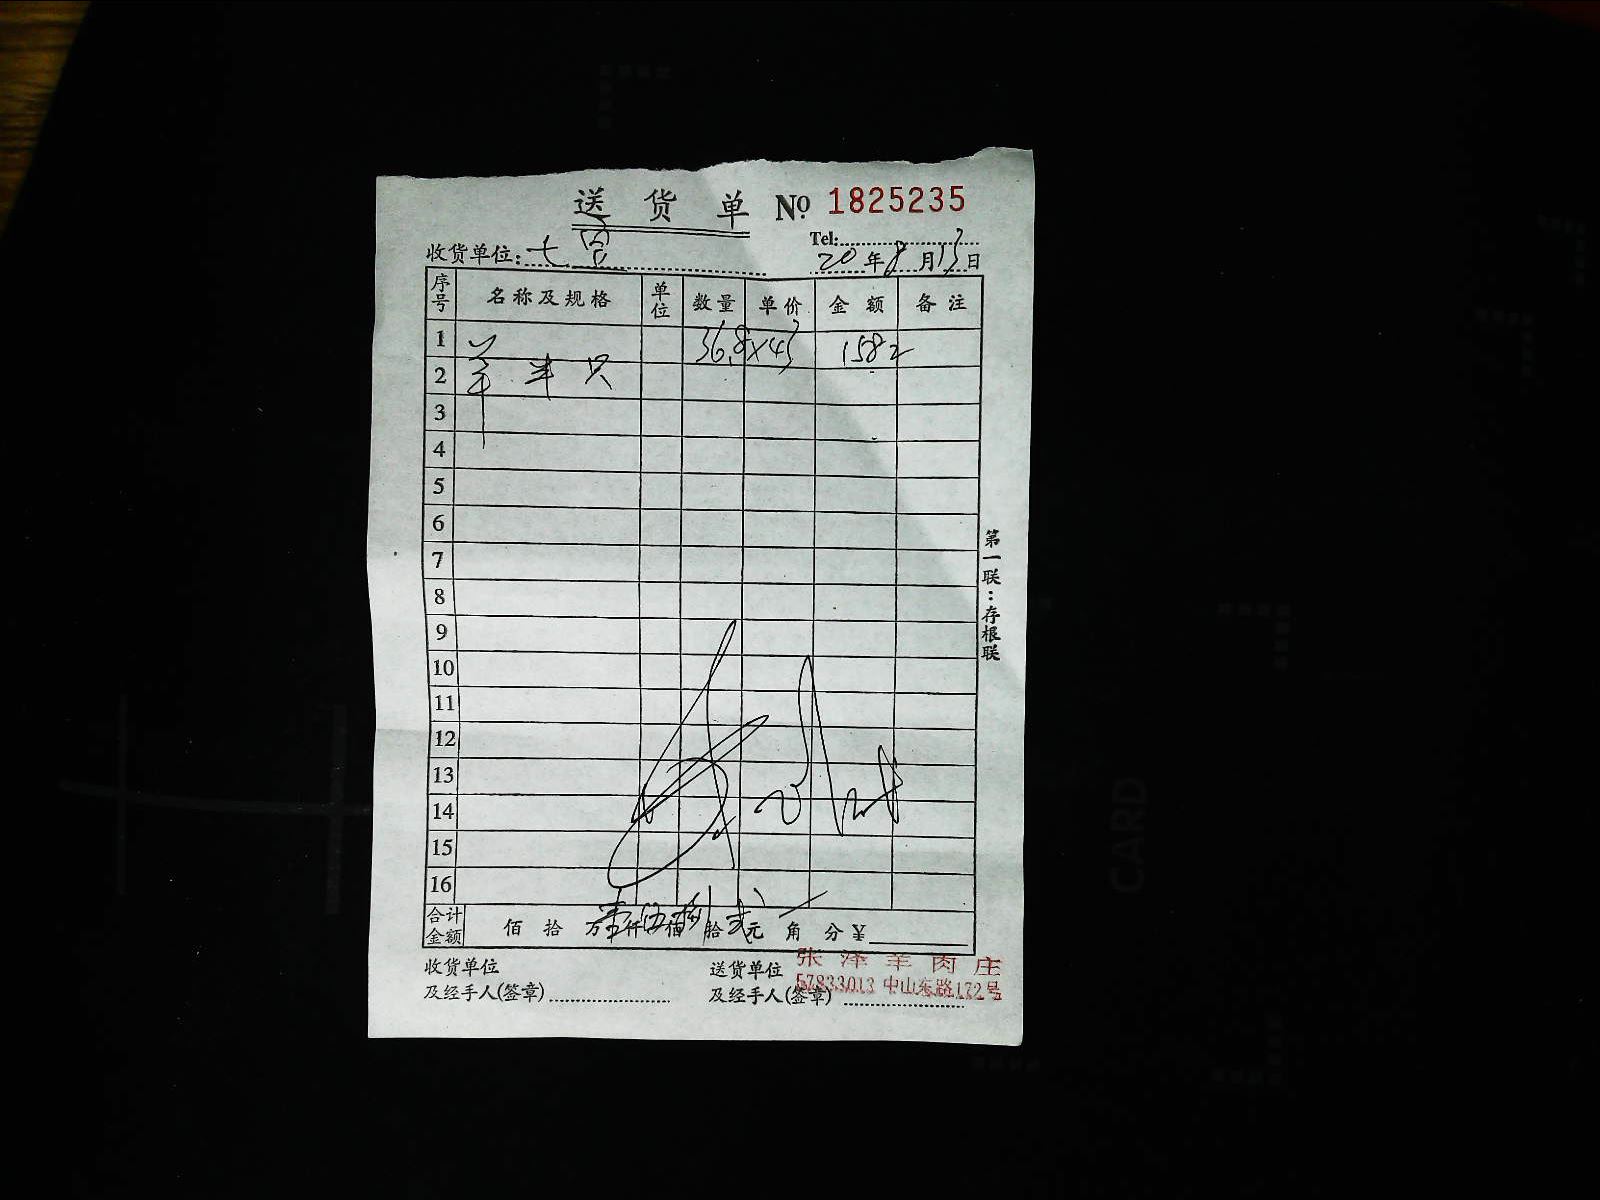 送货单 № 1825235
Tel:
收货单位: 七宫 20年8月13日
序号 名称及规格 单位 数量 单价 金额 备注
1 36.8×43 1582
2 羊半只
3
4
5
6
7
8
9
10
11
12
13
14
15
16
合计金额 佰 拾 万壹仟伍佰捌拾贰元 角 分 ¥
收货单位 送货单位
及经手人(签章) 及经手人(签章)
张泽羊肉庄
57833013 中山东路172号
第一联:存根联
CARD